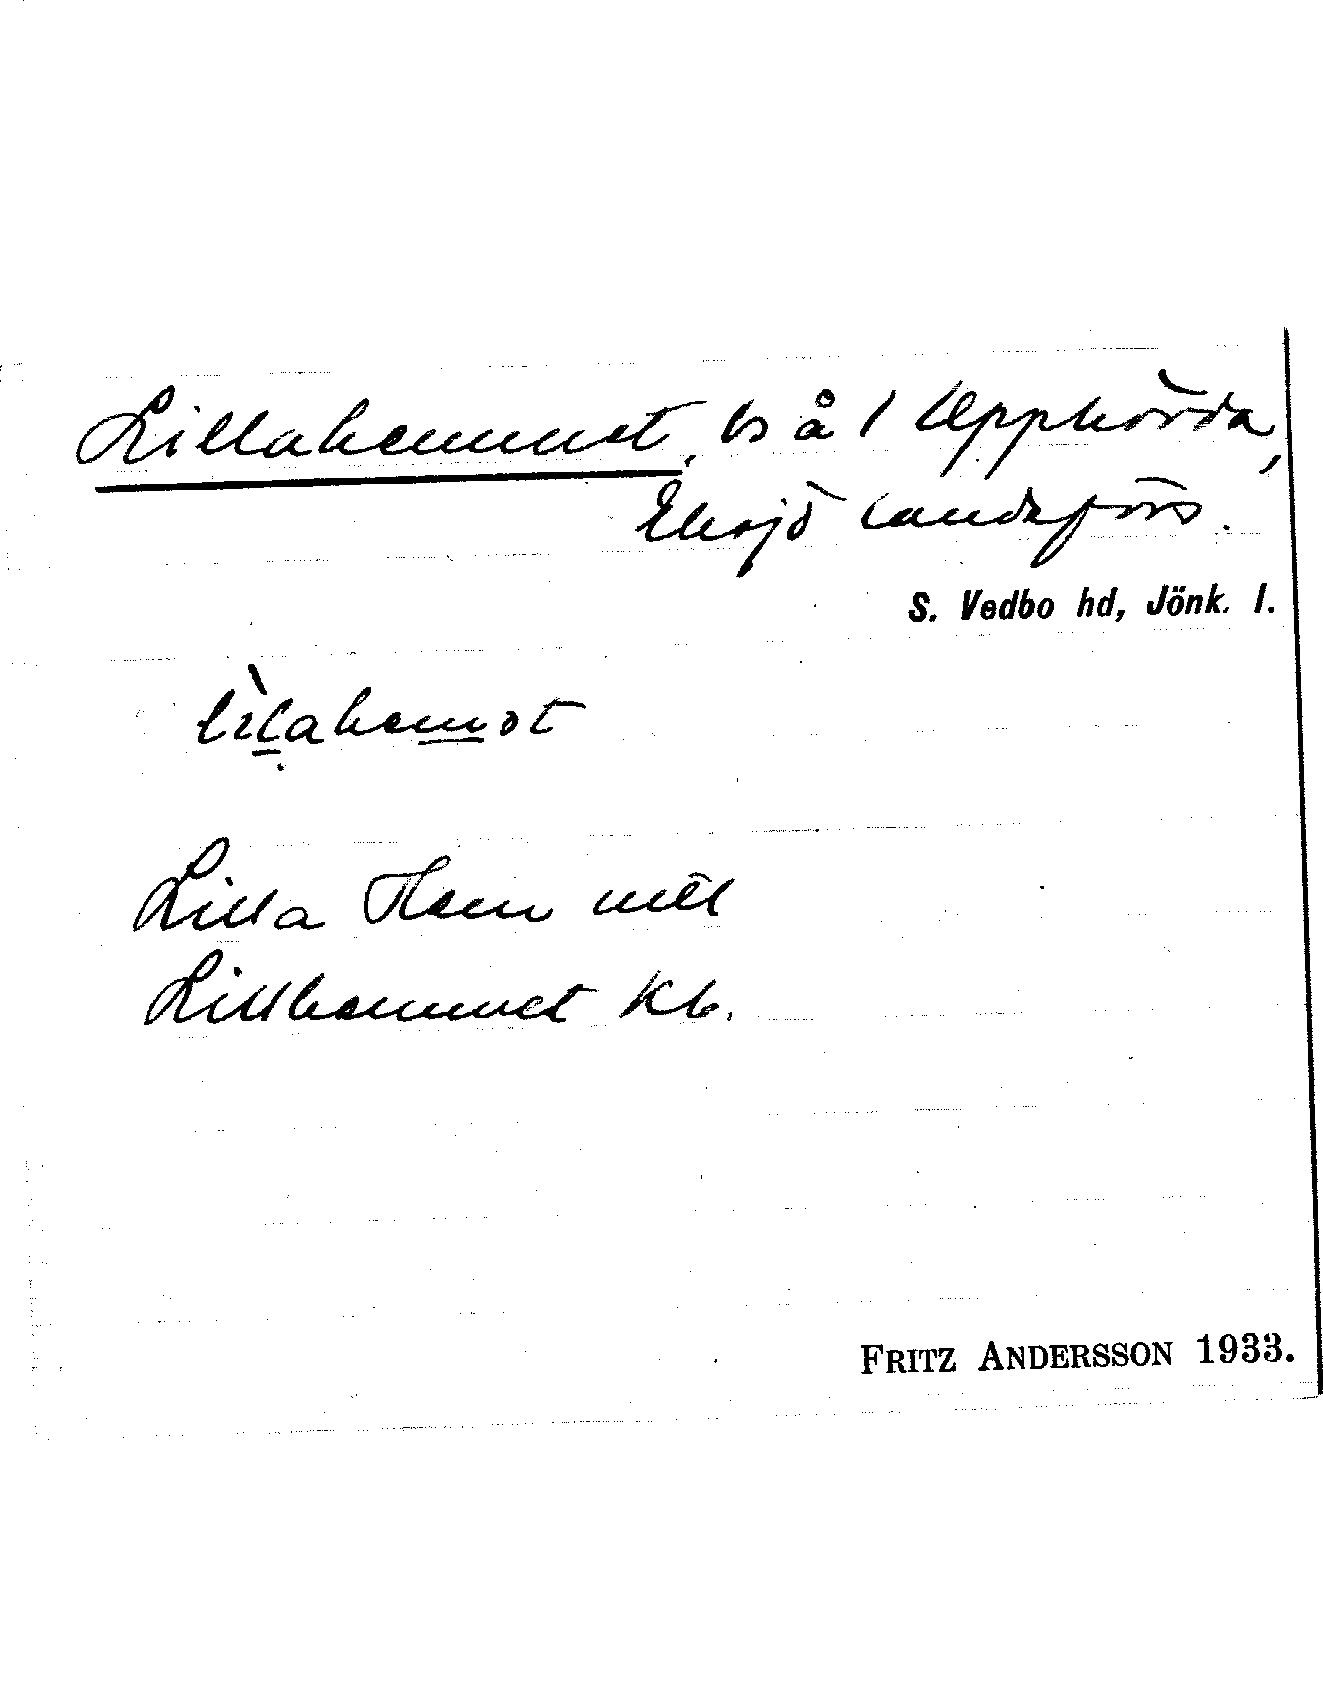 Lillahemmet, ls å 1 Upphörda,
Eksjö landsförs.
S. Vedbo hd, Jönk. l.
lìlahemət
Lilla Hem mtl
Lillhemmet Kb.
FRITZ ANDERSSON 1933.